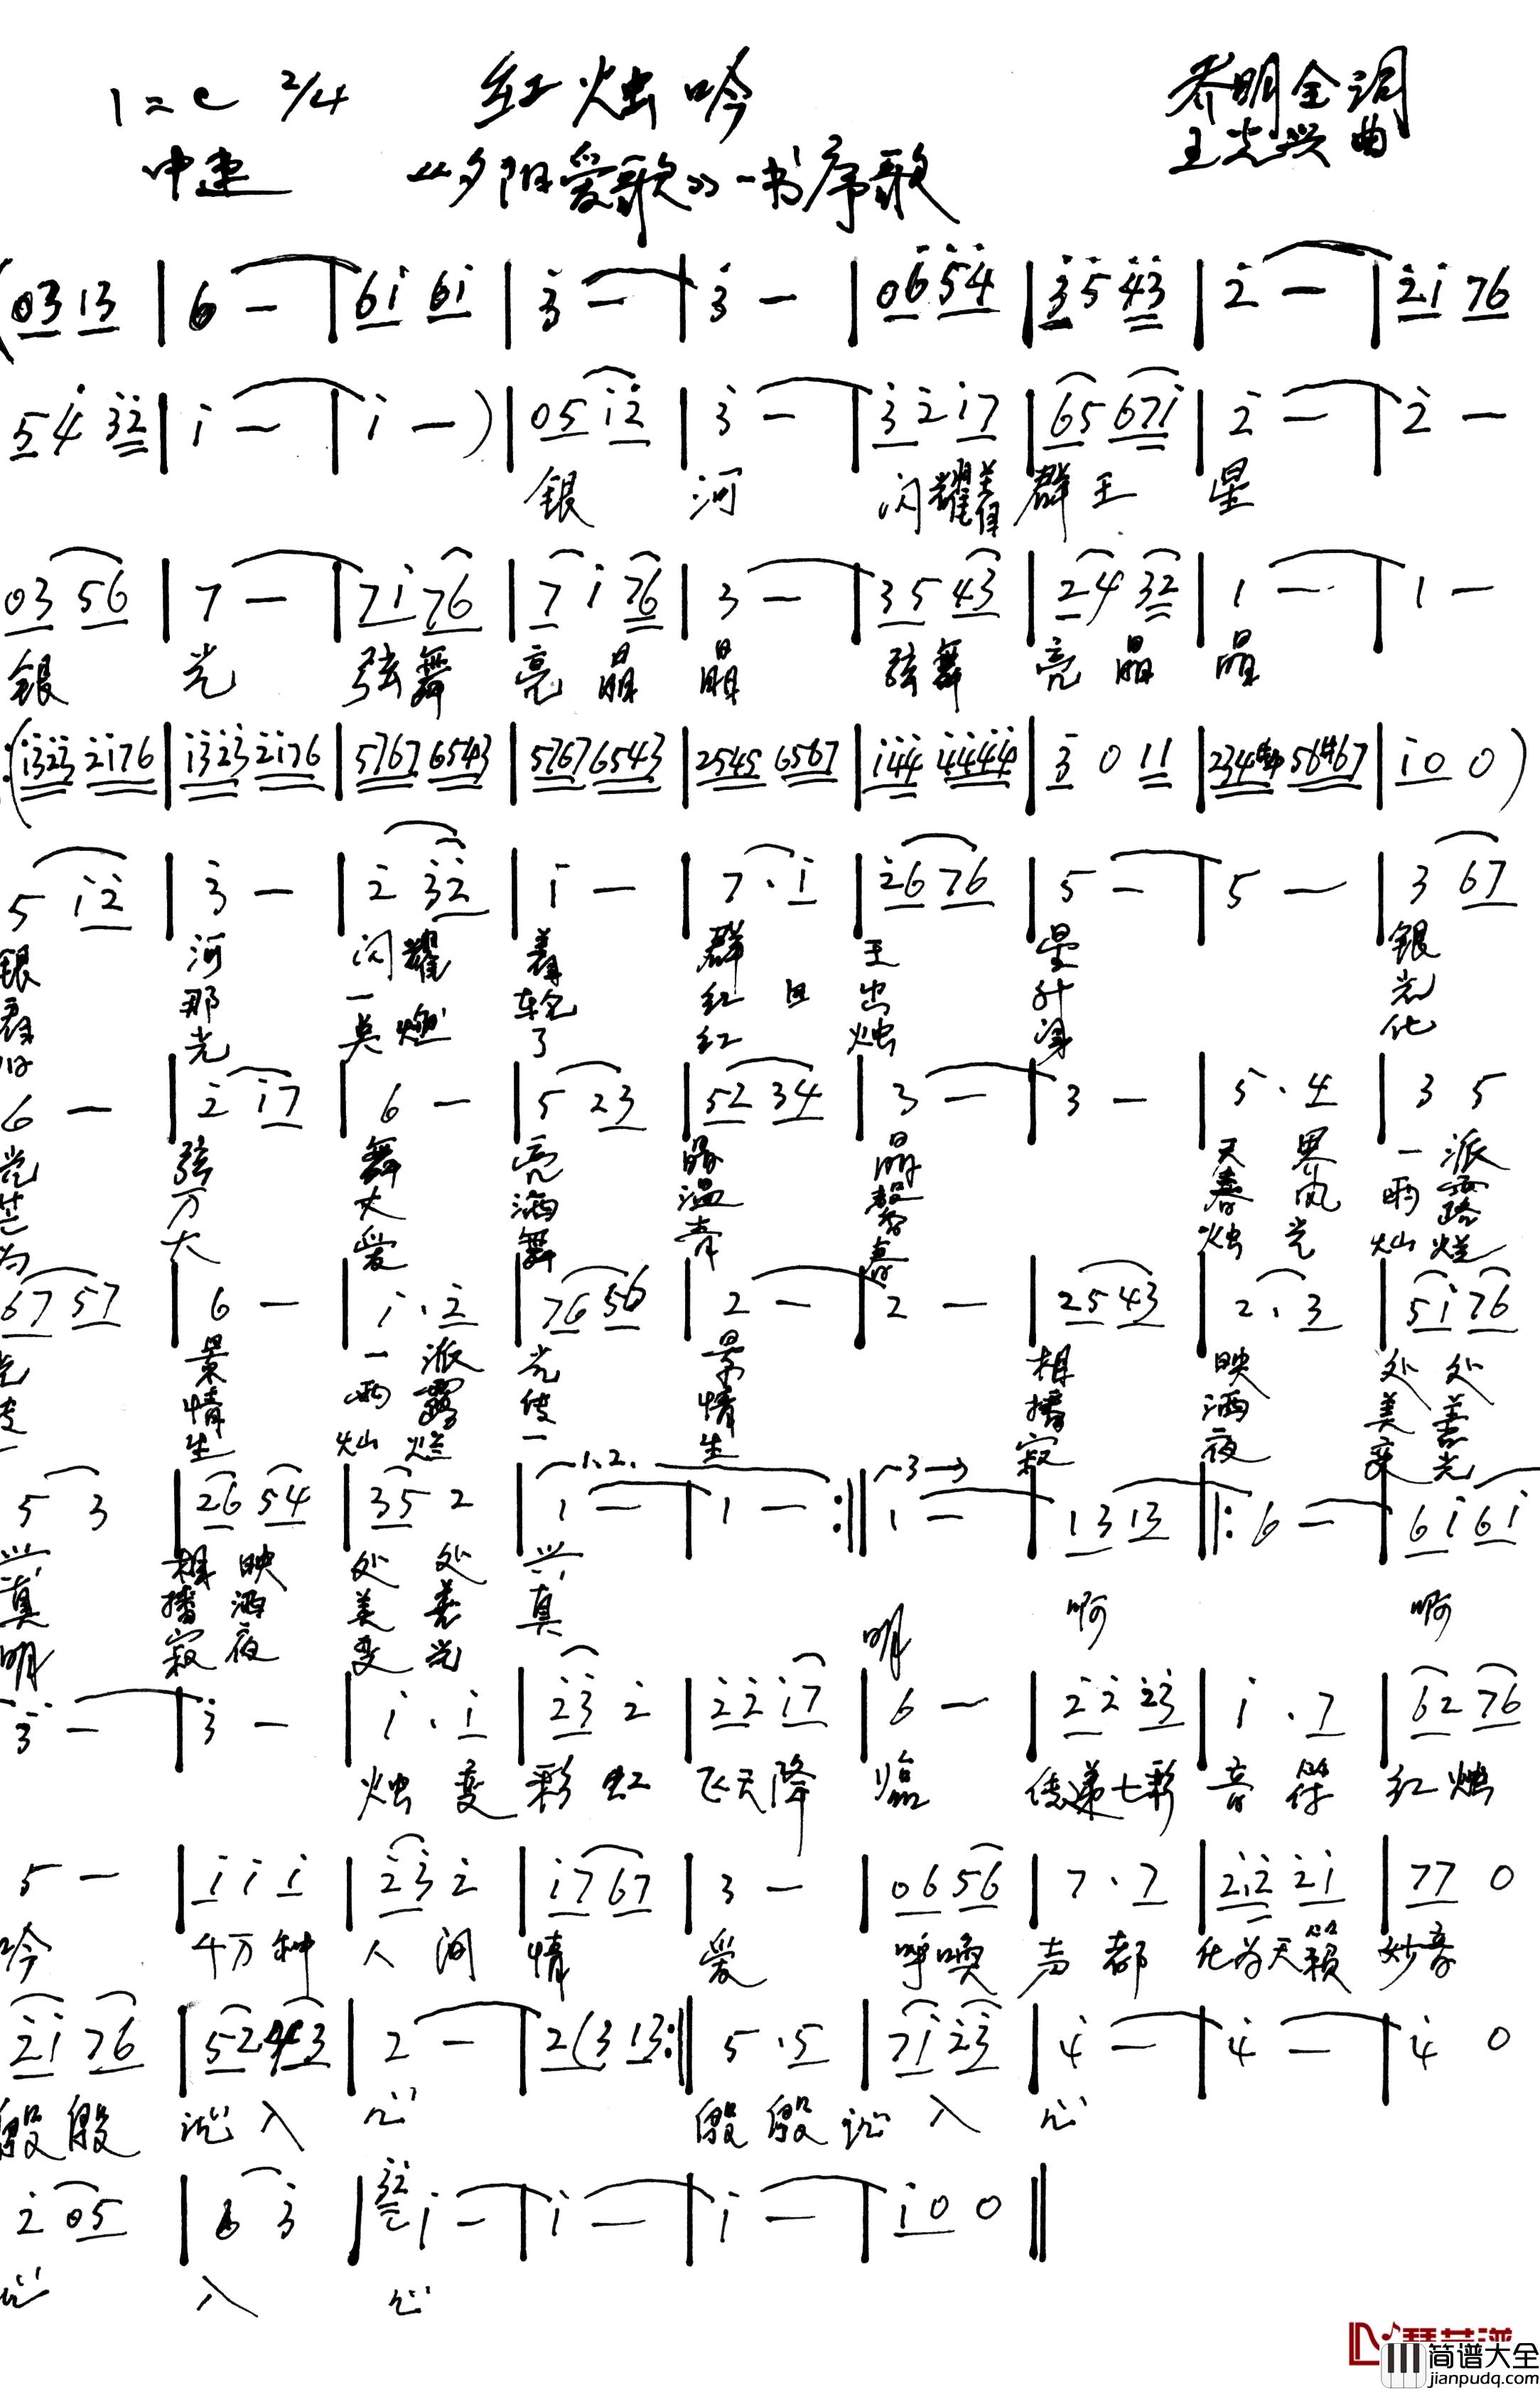 1=C 2/4 红烛吟 乔明全词
中速 《夕阳爱歌》一书序歌 王光兴 曲
(03 13 | 6 — | 6i 6i | 3 — | 3 — | 06 54 | 35 43 | 2 — | 2i 76
54 32 | i — | i — ) | 05 i2 | 3 — | 32 i7 | 65 67i | 2 — | 2 —
银 河 闪耀着 群王 星
03 56 | 7 — | 7i 76 | 7 i 76 | 3 — | 35 43 | 24 32 | 1 — | 1 —
银 光 弦舞 亮晶 晶 弦舞 亮晶 晶
:(i323 2i76 | i323 2i76 | 5767 6543 | 5767 6543 | 2545 6567 | i44 4444 | 3 0 11 | 234#4 56#67 | i0 0 )
5 i2 | 3 — | 2 32 | i — | 7 · i | 26 76 | 5 — | 5 — | 3 67
银 河 闪耀 着 群 王 星 银
那 一 轮 红 日 出 升 光
光 点燃 了 红 烛 化
6 — | 2 i7 | 6 — | 5 23 | 52 34 | 3 — | 3 — | 5 · 4 | 3 5
光 弦 舞 亮 晶 晶 天 界 一 派
芒 万 丈 满 温 馨 春 风 雨 露
为 大 爱 舞 青 春 烛 光 灿 烂
67 57 | 6 — | i · 2 | 76 56 | 2 — | 2 — | 25 43 | 2 · 3 | 5i 76
光 景 一 派 光 景 相 映 处 处
情 雨 露 传 情 播 洒 美 善
一 生 灿 烂 一 生 寂 夜 变 光
5 3 | 26 54 | 35 2 | 1 — | 1 — :|| 1 — | 13 13 ||: 6 — | 6i 6i
1、2. 3
兴 相 映 处 处 兴
真 播 洒 美 善 真
明 寂 夜 变 光 明 啊 啊
3 — | 3 — | i · i | 23 2 | 22 i7 | 6 — | 22 23 | i · 7 | 62 76
烛 变 彩 虹 飞天降 临 传递七彩 音 符 红 烛
5 — | i i i | 23 2 | i7 67 | 3 — | 06 56 | 7 · 7 | 2·2 2i | 77 0
吟 千万种 人 间 情 爱 呼唤 声 都 化为天籁 妙音
2i 76 | 52 43 | 2 — | 2(3 13 :|| 5 · 5 | 7i 23 | 4 — | 4 — | 4 0
殷殷 沁入 心 殷 殷 沁 入 心
2 05 | 6 3 | 32 i — | i — | i — | i0 0 ||
沁 入 心
简谱大全
jianpudq.com